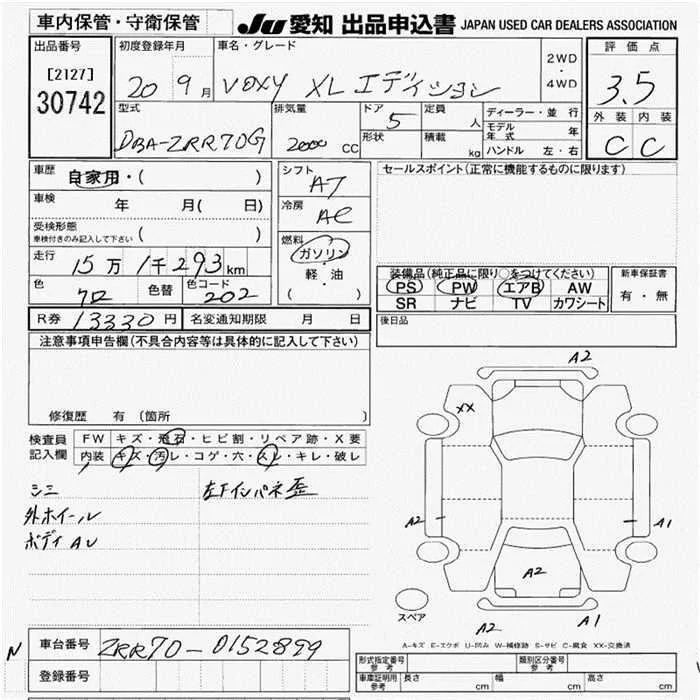 車内保管・守衛保管
JU 愛知 出品申込書 JAPAN USED CAR DEALERS ASSOCIATION
出品番号
[2127]
30742
初度登録年月
20 9月
車名・グレード
VOXY XLエディション
2WD
・
4WD
評価点
3.5
外装 内装
C C
型式
DBA-ZRR70G
排気量
2000 CC
ドア
5
形状
定員
人
積載
kg
ディーラー・並行
モデル年式 年
ハンドル 左・右
車歴
自家用・( )
車検
年 月(日)
受検形態
車検付きのみ記入して下さい ( )
走行
15万1千293km
色
クロ
色替
色コード
202
シフト
AT
冷房
AC
燃料
ガソリン
・
軽・油
( )
セールスポイント(正常に機能するものに限ります)
装備品(純正品に限り○をつけてください)
PS PW エアB AW
SR ナビ TV カワシート
新車保証書
有・無
R券 13330円 名変通知期限 月 日
後日品
注意事項申告欄(不具合内容等は具体的に記入して下さい)
修復歴 有(箇所 )
検査員
記入欄
FW キズ・飛石・ヒビ割・リペア跡・X要
内装 キズ・汚レ・コゲ・穴・スレ・キレ・破レ
シミ
左下インパネ歪
外ホイール
ボディAU
A2
XX
A2
A1
A2
スペア
A2
A1
A-キズ E-エクボ U-凹み W-補修跡 S-サビ C-腐食 XX-交換済
N
車台番号 ZRR70-0152899
登録番号
形式指定番号
参考
類別区分番号
参考
車庫証明用
参考
長さ cm 幅 cm 高さ cm